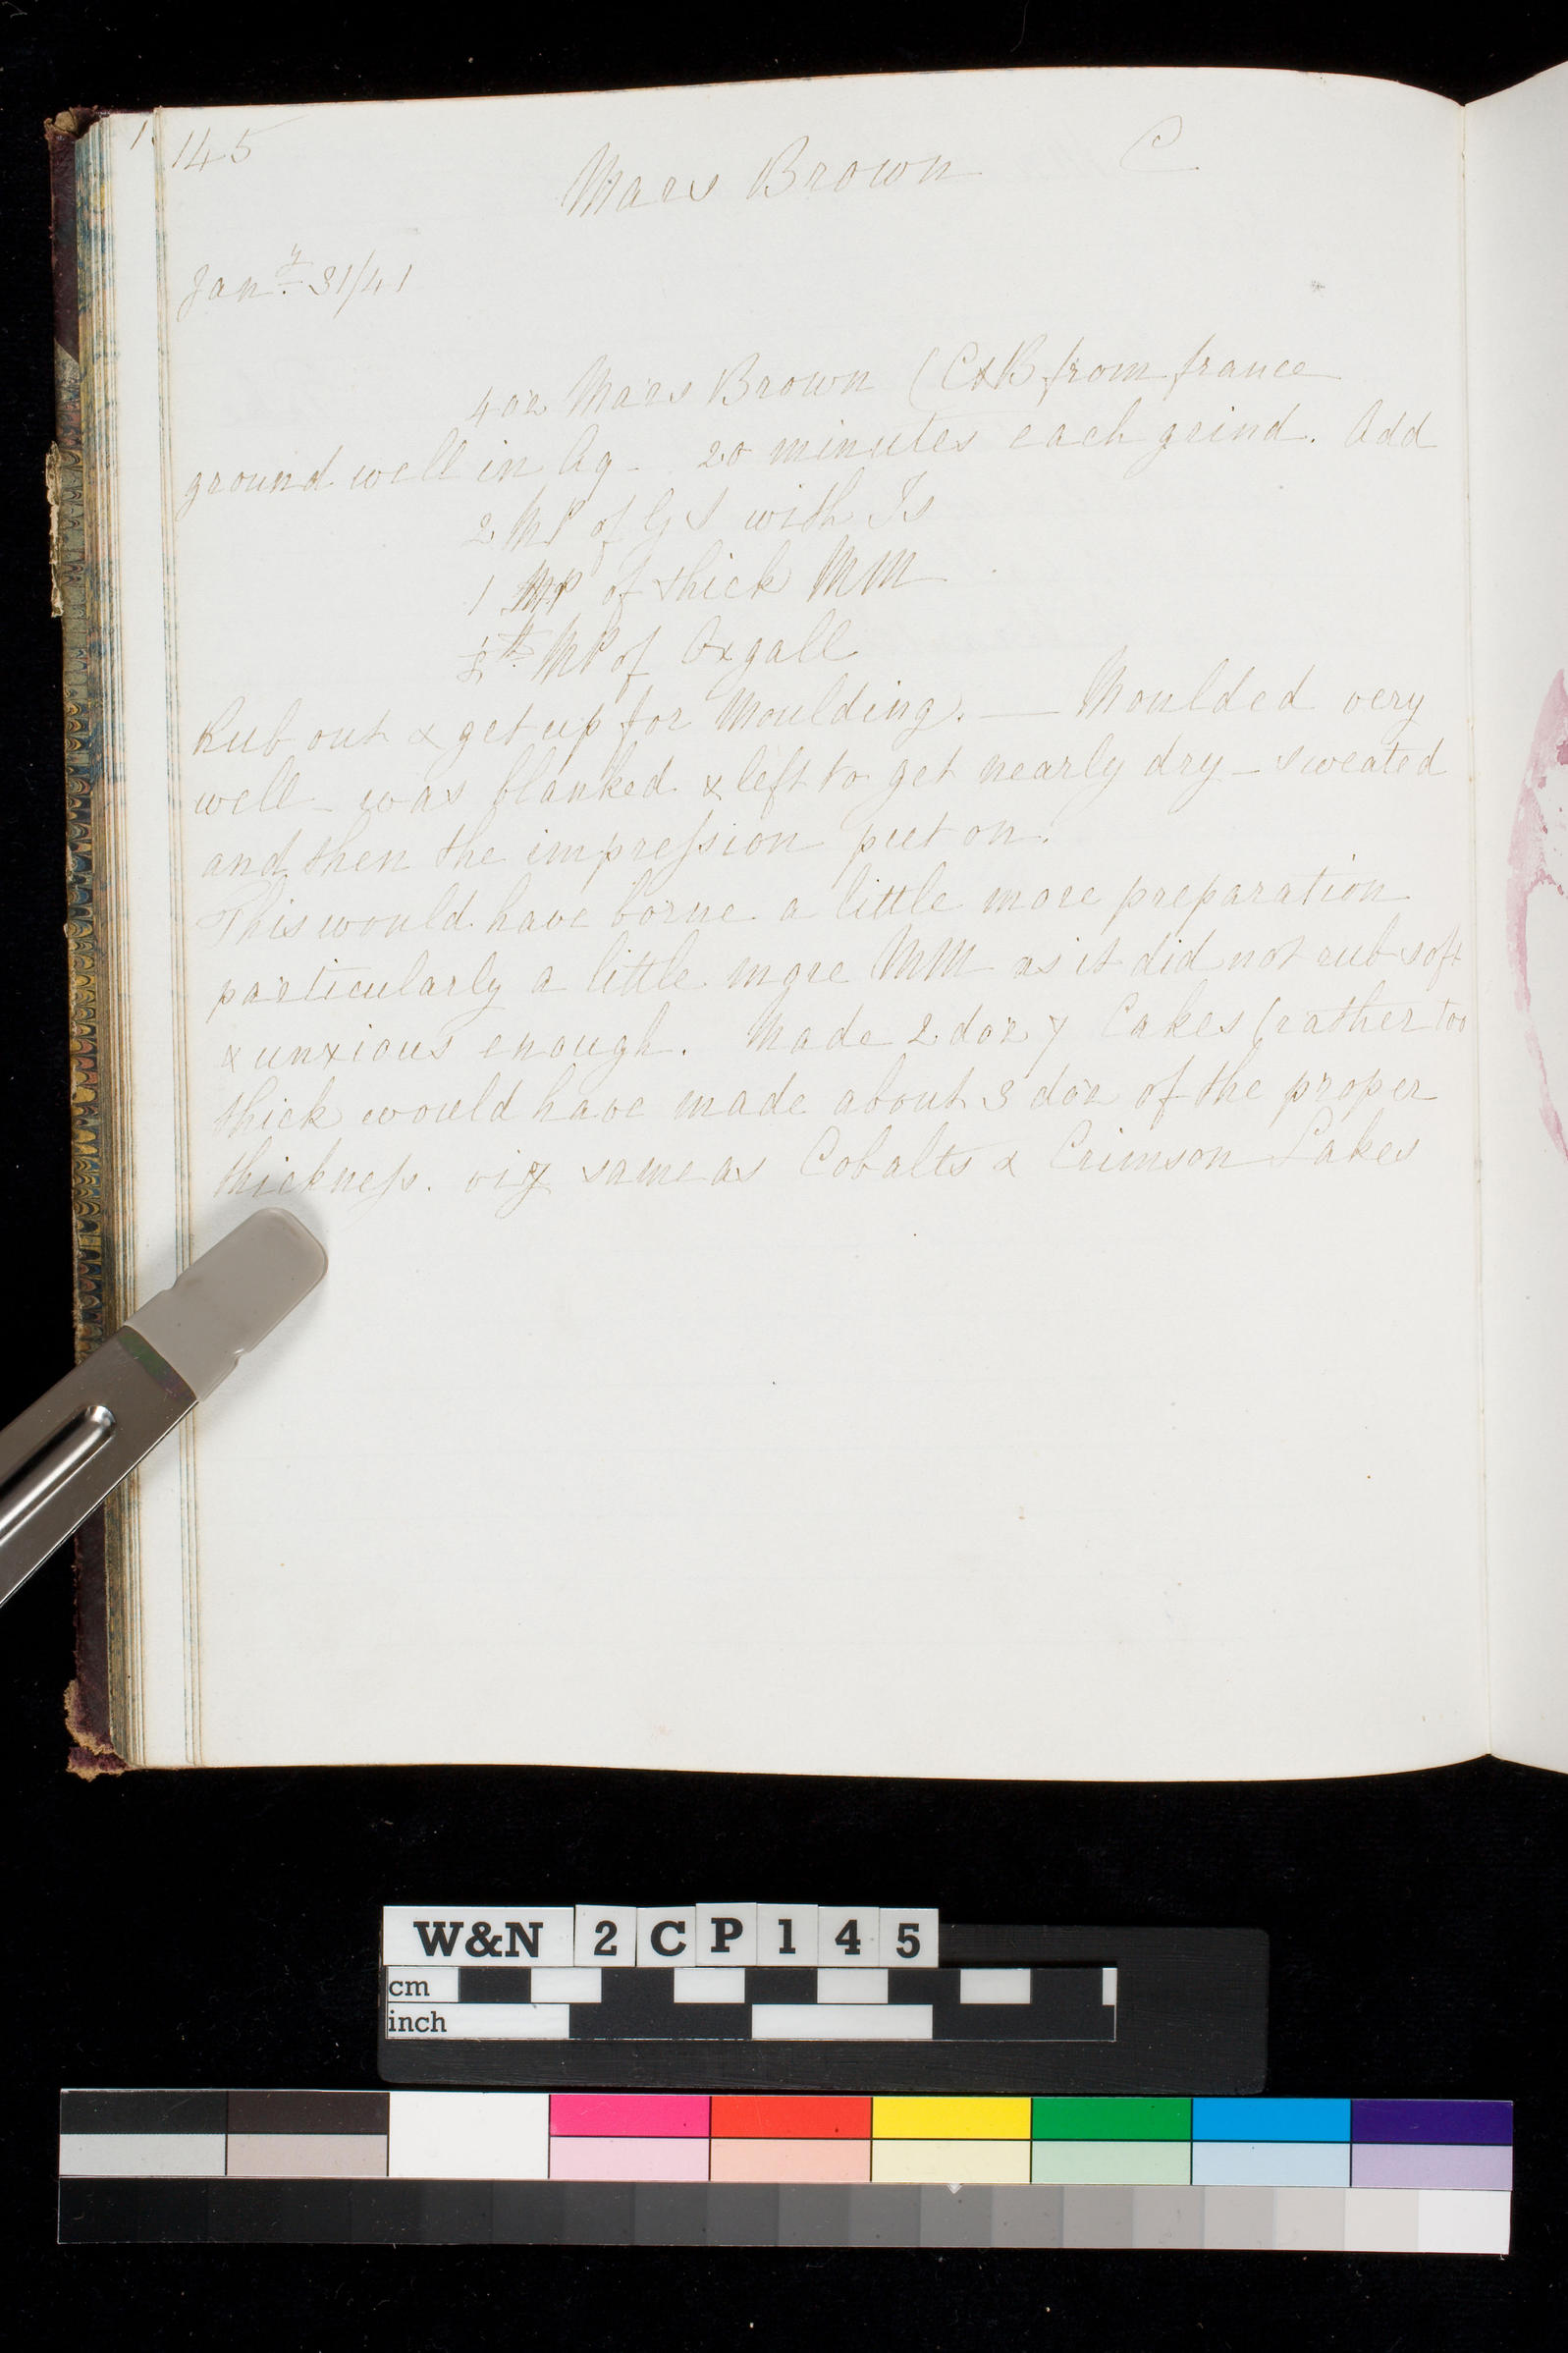 145
Mars Brown C
Jan.y 31/41
4 oz Mars Brown (C&B from france
ground well in Aq - 20 minutes each grind. Add
2 MP of GS with Is
1 MP of thick MM
1/8th MP of Oxgall
Rub out & get up for Moulding. — Moulded very
well - was blanked & left to get nearly dry - sweated
and then the impression put on.
This would have borne a little more preparation
particularly a little more MM as it did not rub soft
& unxious enough. Made 2 doz 7 Cakes (rather too
thick would have made about 3 doz of the proper
thickness. viz same as Cobalts & Crimson Lakes
W&N 2CP145
cm
inch